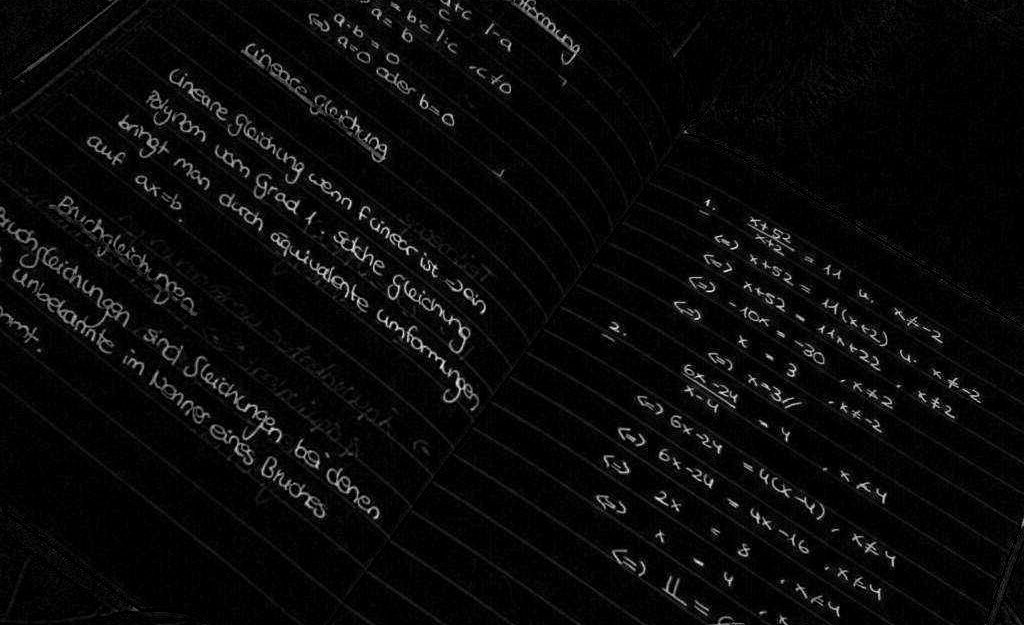 formung
a+c | -a
= b·c |:c , c≠0
a = b
a·b = 0
(=) a=0 oder b=0
Lineare Gleichung
Lineare Gleichung wenn F linear ist → ein
Polynom vom Grad 1. solche Gleichung
bringt man durch äquivalente umformungen
auf ax=b.
Bruchgleichungen
Bruchgleichungen sind Gleichungen bei denen
unbekannte im Nenner eines Bruches
ommt.
1. x+52/x+2 = 11 u. x≠-2
(=) x+52 = 11(x+2) u. x≠-2
(=) x+52 = 11x+22 , x≠2
(=) -10x = -30 , x≠2
(=) x = 3 , x≠-2
(=) x=3//
2. 6x-24/x-4 = 4 , x≠4
(=) 6x-24 = 4(x-4), x≠4
(=) 6x-24 = 4x-16 , x≠4
(=) 2x = 8 , x≠4
(=) x = 4 , x
(=) 𝕃 =